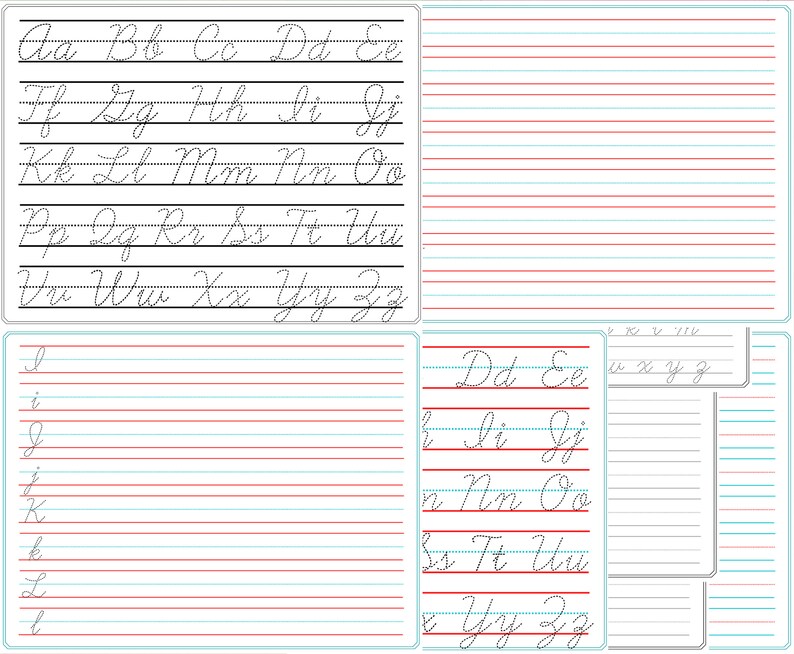 Aa Bb Cc Dd Ee
Ff Gg Hh Ii Jj
Kk Ll Mm Nn Oo
Pp Qq Rr Ss Tt Uu
Vv Ww Xx Yy Zz
I
i
J
j
K
k
L
l
Dd Ee
Ii Jj
Nn Oo
Ss Tt Uu
Yy Zz
x y z